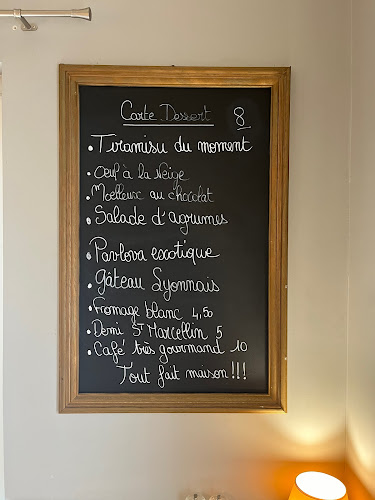 Carte Dessert 8
• Tiramisu du moment
• Œuf à la Neige
• Moelleux au chocolat
• Salade d'agrumes
• Pavlova exotique
• Gâteau Lyonnais
• Fromage blanc 4,50
• Demi St Marcellin 5
• Café très gourmand 10
Tout fait maison!!!